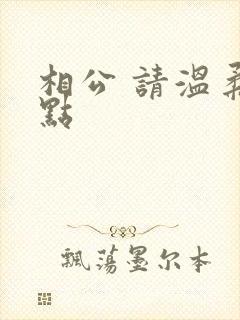 相公 請溫柔
點
飄蕩墨尔本